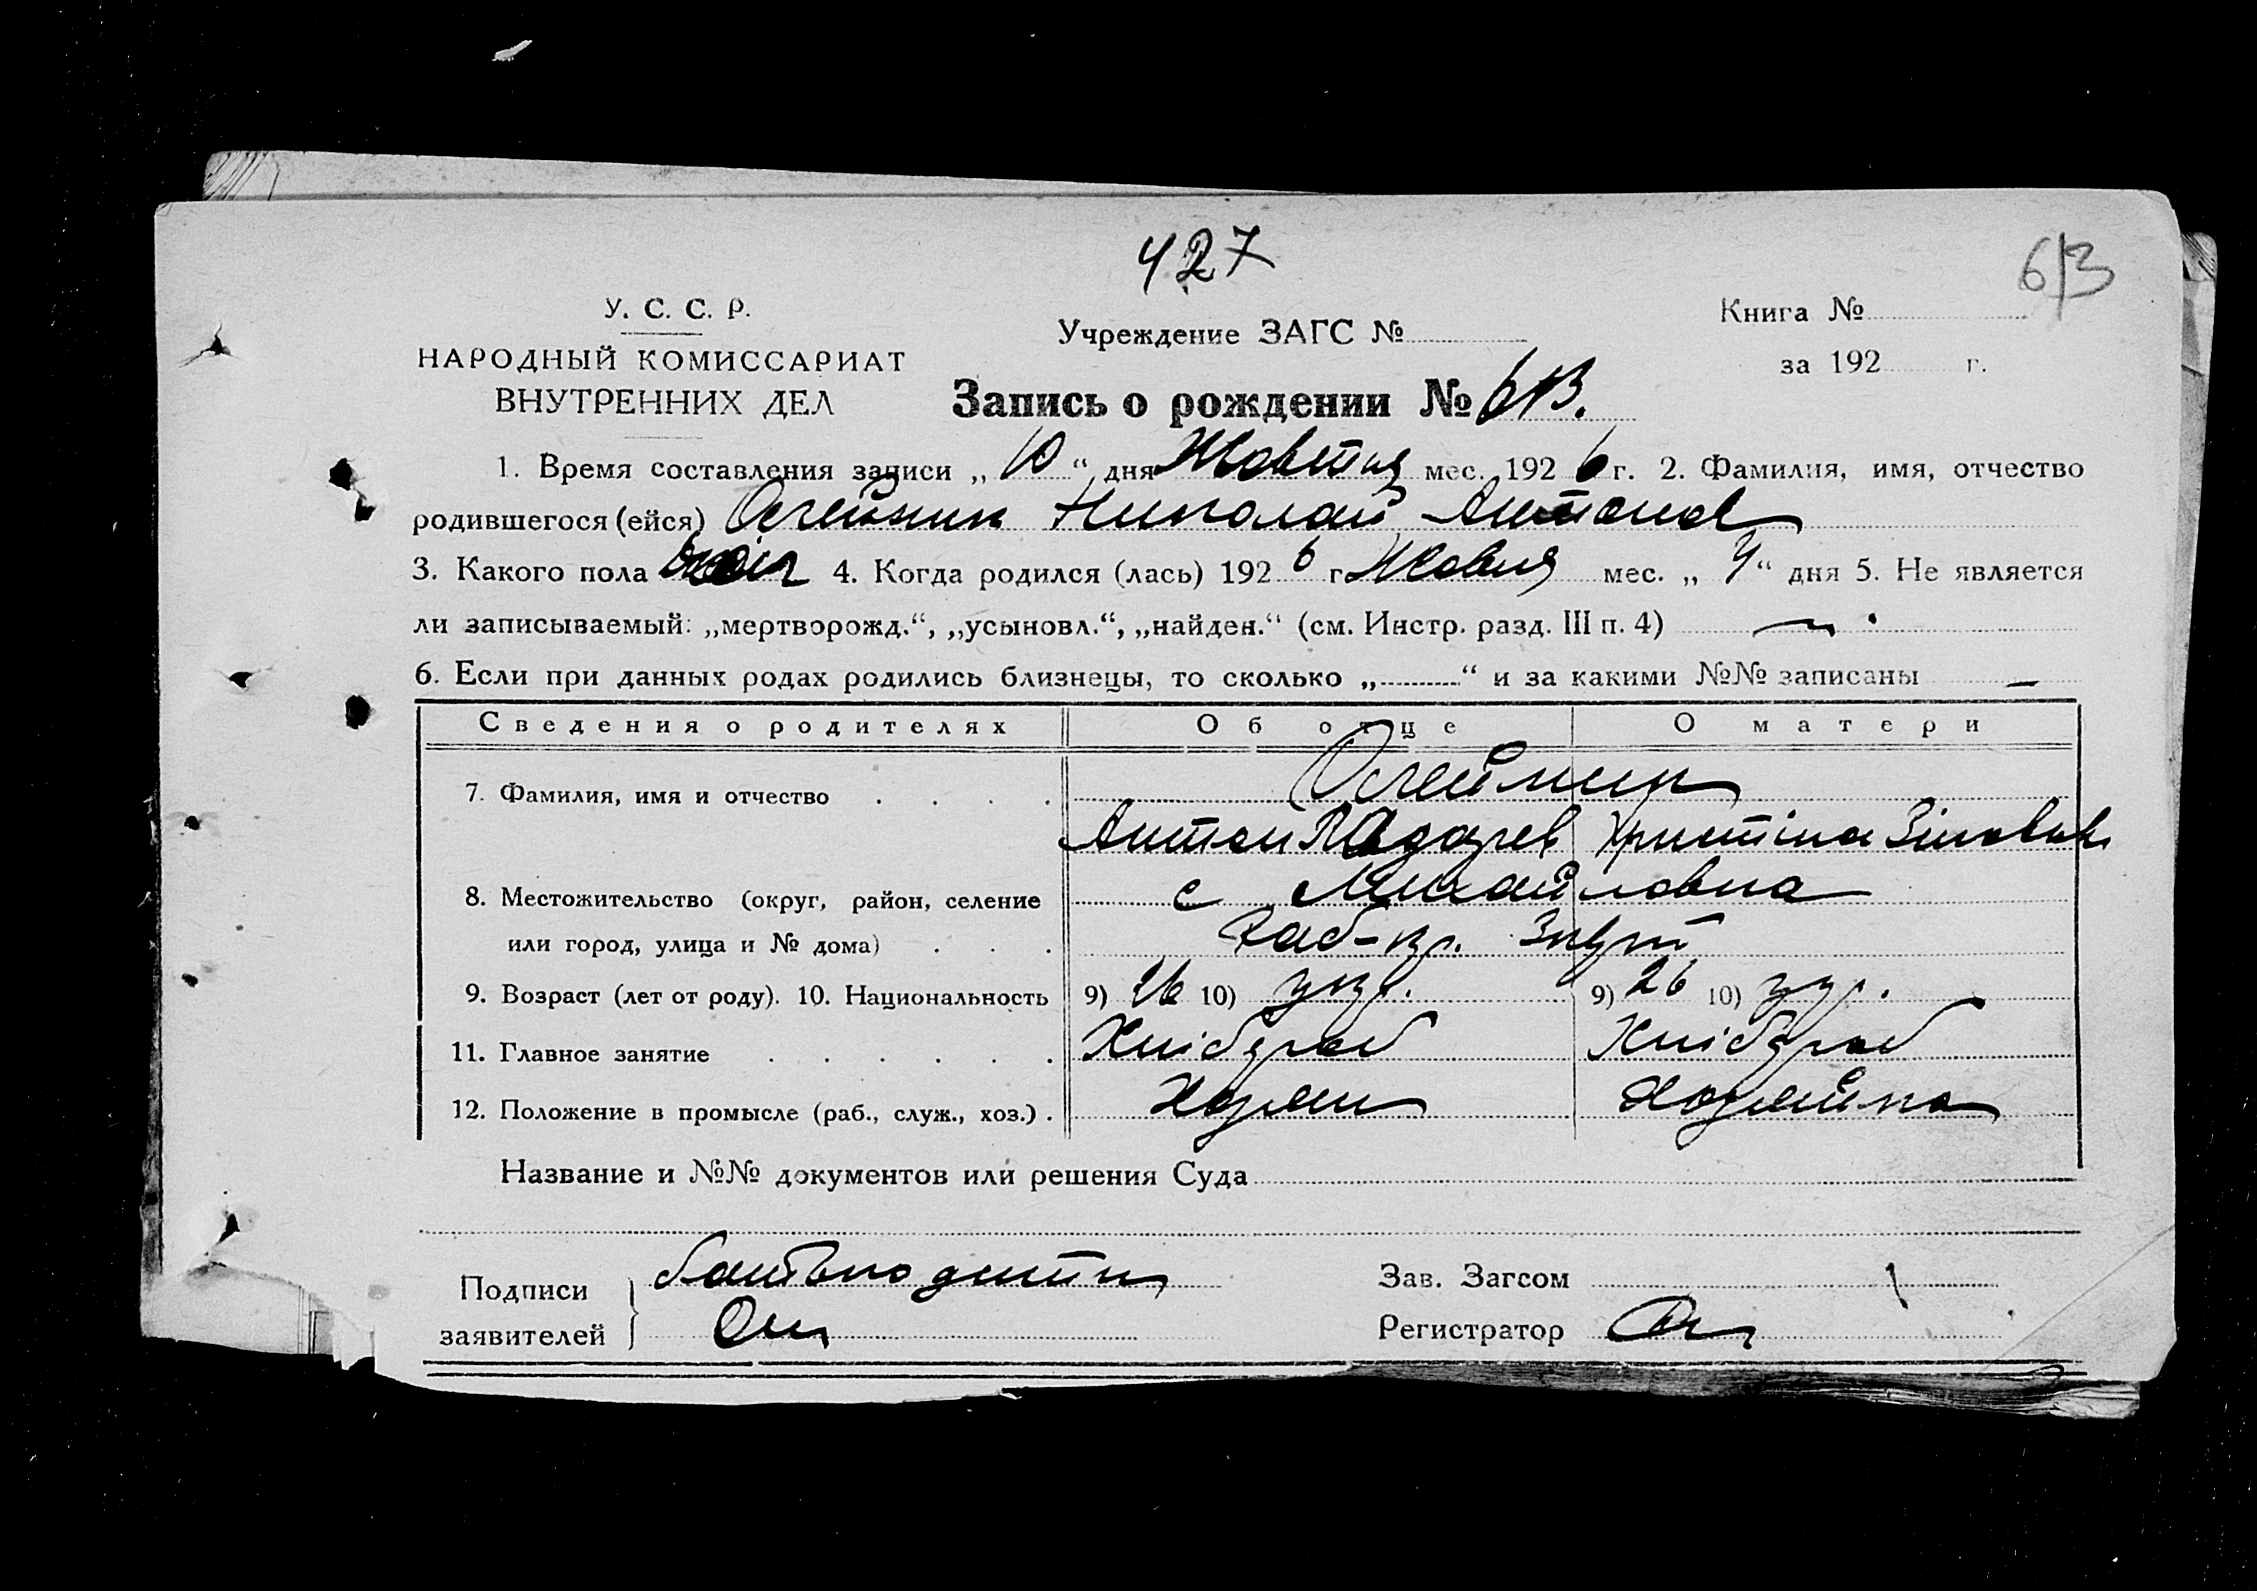 427
613
У. С. С. Р.
НАРОДНЫЙ КОМИССАРИАТ
ВНУТРЕННИХ ДЕЛ
Учреждение ЗАГС №
Книга №
за 192 г.
Запись о рождении № 613.
1. Время составления записи „ 10 “ дня Жовтня мес. 192 6 г. 2. Фамилия, имя, отчество
родившегося (ейся) Олейник Николай Антонов
3. Какого пола 4. Когда родился (лась) 192 6 г. Жовня мес. „ 4 “ дня 5. Не является
ли записываемый: „мертворожд.“, „усыновл.“, „найден.“ (см. Инстр. разд. III п. 4) —
6. Если при данных родах родились близнецы, то сколько „ “ и за какими №№ записаны —
Сведения о родителях Об отце О матери
7. Фамилия, имя и отчество . . . . Олейник
Антон Лазарев Христіна Зіновьев
8. Местожительство (округ, район, селение с Михайловка
или город, улица и № дома) . . .
9. Возраст (лет от роду). 10. Национальность 9) 26 10) укр. 9) 26 10) укр.
11. Главное занятие . . . . . . Хлібороб Хлібороб
12. Положение в промысле (раб., служ., хоз.) . Хозяин Хозяйка
Название и №№ документов или решения Суда
Подписи
заявителей
Зав. Загсом
Регистратор